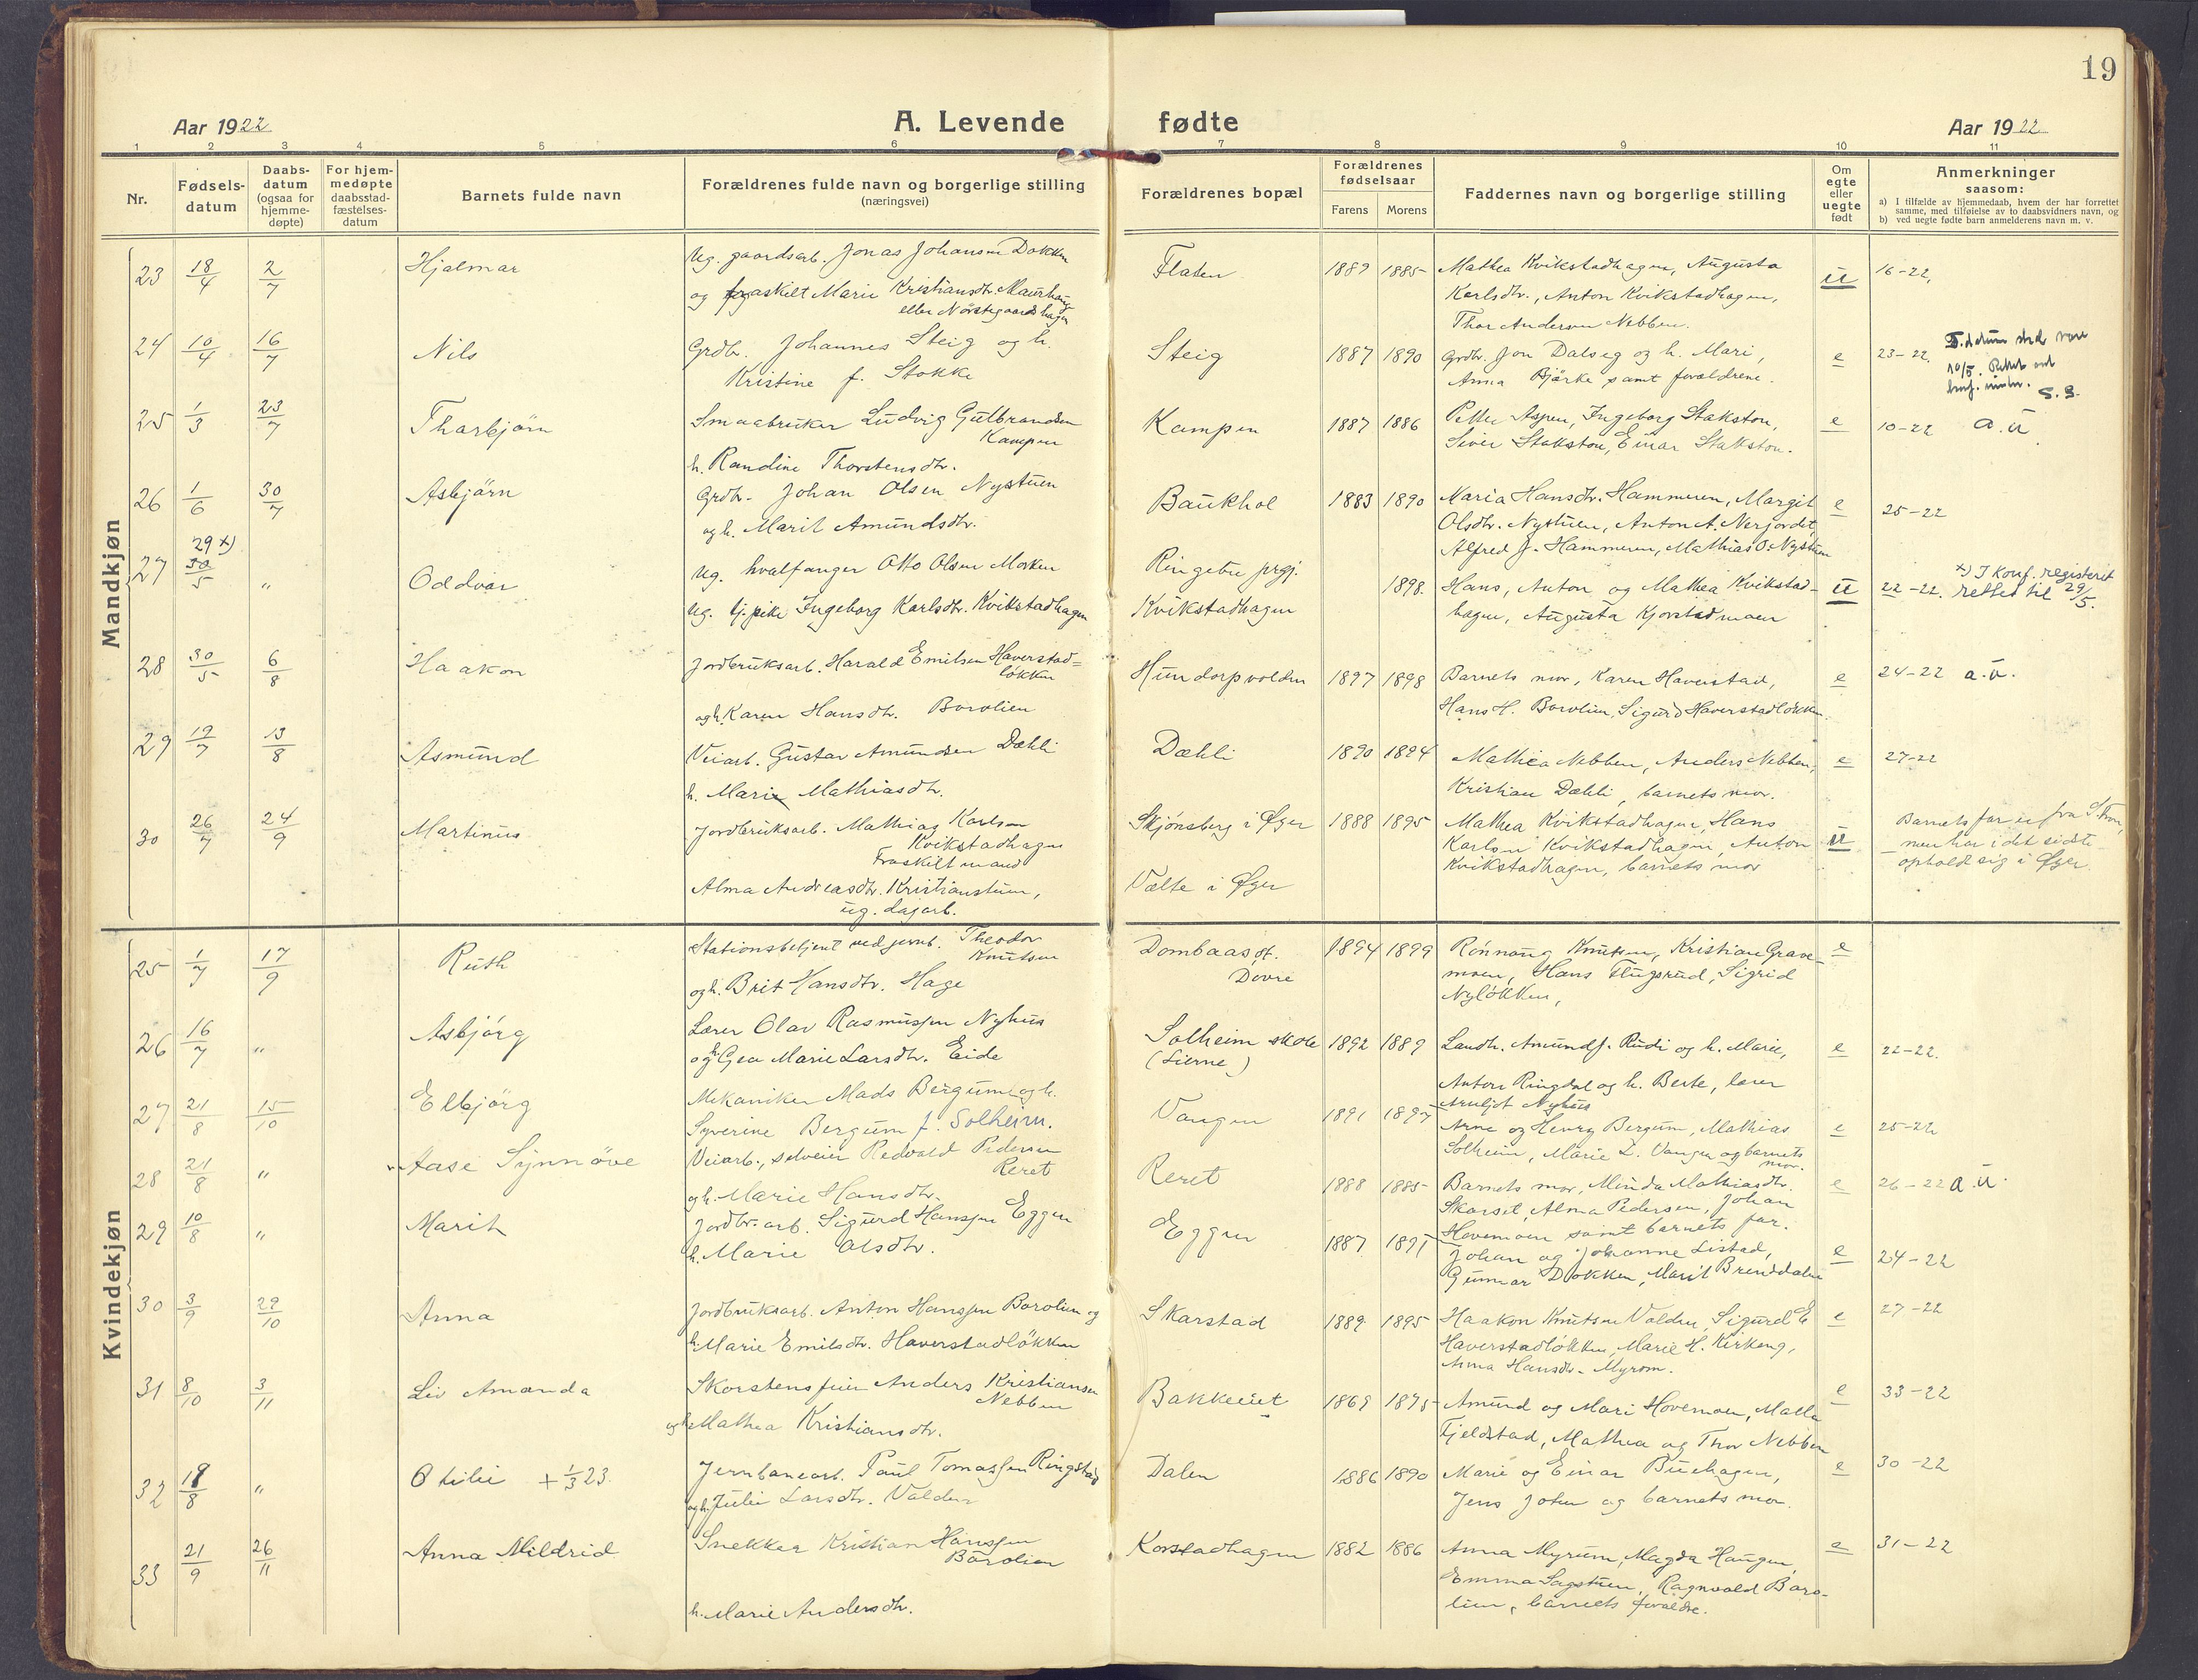 19
Aar 1922
A. Levende fødte
Aar 1922
1 2 3 4 5 6 7 8 9 10 11
Nr.
Fødsels-
datum
Daabs-
datum
(ogsaa for
hjemme-
døpte)
For hjem-
medøpte
daabsstad-
fæstelses-
datum
Barnets fulde navn
Forældrenes fulde navn og borgerlige stilling
(næringsvei)
Forældrenes bopæl
Forældrenes
fødselsaar
Farens Morens
Faddernes navn og borgerlige stilling
Om
egte
eller
uegte
født
Anmerkninger
saasom:
a) I tilfælde av hjemmedaab, hvem der har forrettet
samme, med tilføielse av to daabsvidners navn, og
b) ved uegte fødte barn anmelderens navn m. v.
Mandkjøn
23 18/4 2/7 Hjalmar
Ug. gaardsarb. Jonas Johansen Dokken
og fraskilt Marie Kristiansdtr. Maurhaug
eller Nørstegaardshagen
Flaten 1889 1885
Mathea Kvikstadhagen, Augusta
Karlsdtr., Anton Kvikstadhagen,
Thor Andersen Nebben.
u 16-22,
24 10/4 16/7 Nils
Grdbr. Johannes Steig og h.
Kristine f. Stokke
Steig 1887 1890
Grdbr. Jon Dalseg og h. Mari,
Anna Bjørke samt forældrene.
e 23-22.
F.datum skal være
10/5. Rettet ved
konf. S.S.
25 1/3 23/7 Thorbjørn
Smaabruker Ludvig Gulbrandsen
Kampen
h. Randine Thorstensdtr.
Kampen 1887 1886
Petter Aspen, Ingeborg Stakston,
Siver Stakston, Einar Stakston.
e 10-22 a.u.
26 1/6 30/7 Asbjørn
Grdbr. Johan Olsen Nystuen
og h. Marit Amundsdtr.
Baukhol 1883 1890
Maria Hansdtr. Hammeren, Margit
Olsdtr. Nystuen, Anton A. Nerjordet,
Alfred J. Hammeren, Mathias O. Nystuen
e 25-22
27 29 x) 30/5 " Oddvar
Ug. hvalfanger Otto Olsen Morken
Ug. tj.pike Ingeborg Karlsdtr. Kvikstadhagen
Ringebu prgj.
Kvikstadhagen
1898.
Hans, Anton og Mathea Kvikstad-
hagen, Augusta Kjorstadmoen
u 22-22.
x) I konf. registeret
rettet til 29/5.
28 30/5 6/8 Haakon
Jordbruksarb. Harald Emilsen Haverstad=
løkken
og h. Karen Hansdtr. Borolien
Hundorpvolden 1897 1898
Barnets mor, Karen Haverstad,
Hans H. Borolien, Sigurd Haverstadløkken.
e 24-22 a.u.
29 19/7 13/8 Asmund
Veiarb. Gustav Amundsen Dæhli
h. Marie Mathiasdtr.
Dæhli 1890 1894
Mathea Nebben, Anders Nebben,
Kristian Dæhli, barnets mor.
e 27-22
30 26/7 24/9 Martinus
Jordbruksarb. Mathias Karlsen
Kvikstadhagen
Fraskilt mand
Alma Andreasdtr. Kristianstuen,
ug. dagarb.
Skjønsberg i Øyer 1888 1895
Vælte i Øyer
Mathea Kvikstadhagen, Hans
Karlsen Kvikstadhagen, Anton
Kvikstadhagen, barnets mor
u
Barnets far er fra S. Fron,
men har i det sidste
opholdt sig i Øyer
Kvindekjøn
25 1/7 17/9 Ruth
Stationsbetjent ved jernb. Theodor
Knutsen
og h. Brit Hansdtr. Hage
Dombaas st.
Dovre
1894 1899
Rønnaug Knutsen, Kristian Grave-
moen, Hans Flugsrud, Sigrid
Nyløkken,
e
26 16/7 " Asbjørg
Lærer Olav Rasmussen Nyhus
og h. Gea Marie Larsdtr. Eide
Solheim skole
(Lierne)
1892 1889
Landh. Amund J. Rudi og h. Marie,
Anton Ringdal og h. Berte, lærer
Arnljot Nyhus
e 22-22.
27 21/8 15/10 Elbjørg
Mekaniker Mads Bergum og h.
Syverine Bergum f. Solheim.
Vangen 1891 1897
Arne og Henry Bergum, Mathias
Solheim, Marie L. Vangen og barnets
mor.
e 25-22
28 21/8 " Aase Synnøve
Veiarb., selveier Redvald Pedersen
Reret
og h. Marie Hansdtr.
Reret 1888 1885
Barnets mor, Minda Mathiasdtr.
Skarset, Alma Pedersen, Johan
Hovemoen samt barnets far.
e 26-22 a.u.
29 10/8 " Marit
Jordbr.arb. Sigurd Hanssen Eggen
h. Marie Olsdtr.
Eggen 1887 1891
Johan og Johanne Listad,
Gunnar Dokken, Marit Brenddalen
e 24-22
30 3/9 29/10 Anna
Jordbruksarb. Anton Hanssen Borolien og
h. Marie Emilsdtr. Haverstadløkken
Skarstad 1889 1895
Haakon Knutsen Volden, Sigurd E
Haverstadløkken, Marie H. Kirkeng,
Anna Hansdtr. Myrom.
e 27-22
31 8/10 3/11 Liv Amanda
Skorstensfeier Anders Kristiansen
Nebben
og h. Mathea Kristiansdtr.
Bakkeeiet 1869 1875
Amund og Mari Hovemoen, Malla
Fjeldstad, Mathea og Thor Nebben
e 33-22
32 19/8 " Otilie + 1/3 23.
Jernbanearb. Paul Tomassen Ringstad
og h. Julie Larsdtr. Volden
Dalen 1886 1890
Marie og Einar Buehagen,
Jens Joten og barnets mor.
e 30-22
33 21/9 26/11 Anna Mildrid
Snekker Kristian Hanssen
Borolien
h. Marie Andersdtr.
Korstadhagen 1882 1886
Anna Myrum, Magda Haugen,
Emma Sagstuen, Ragnvald Boro-
lien, barnets forældre.
e 31-22